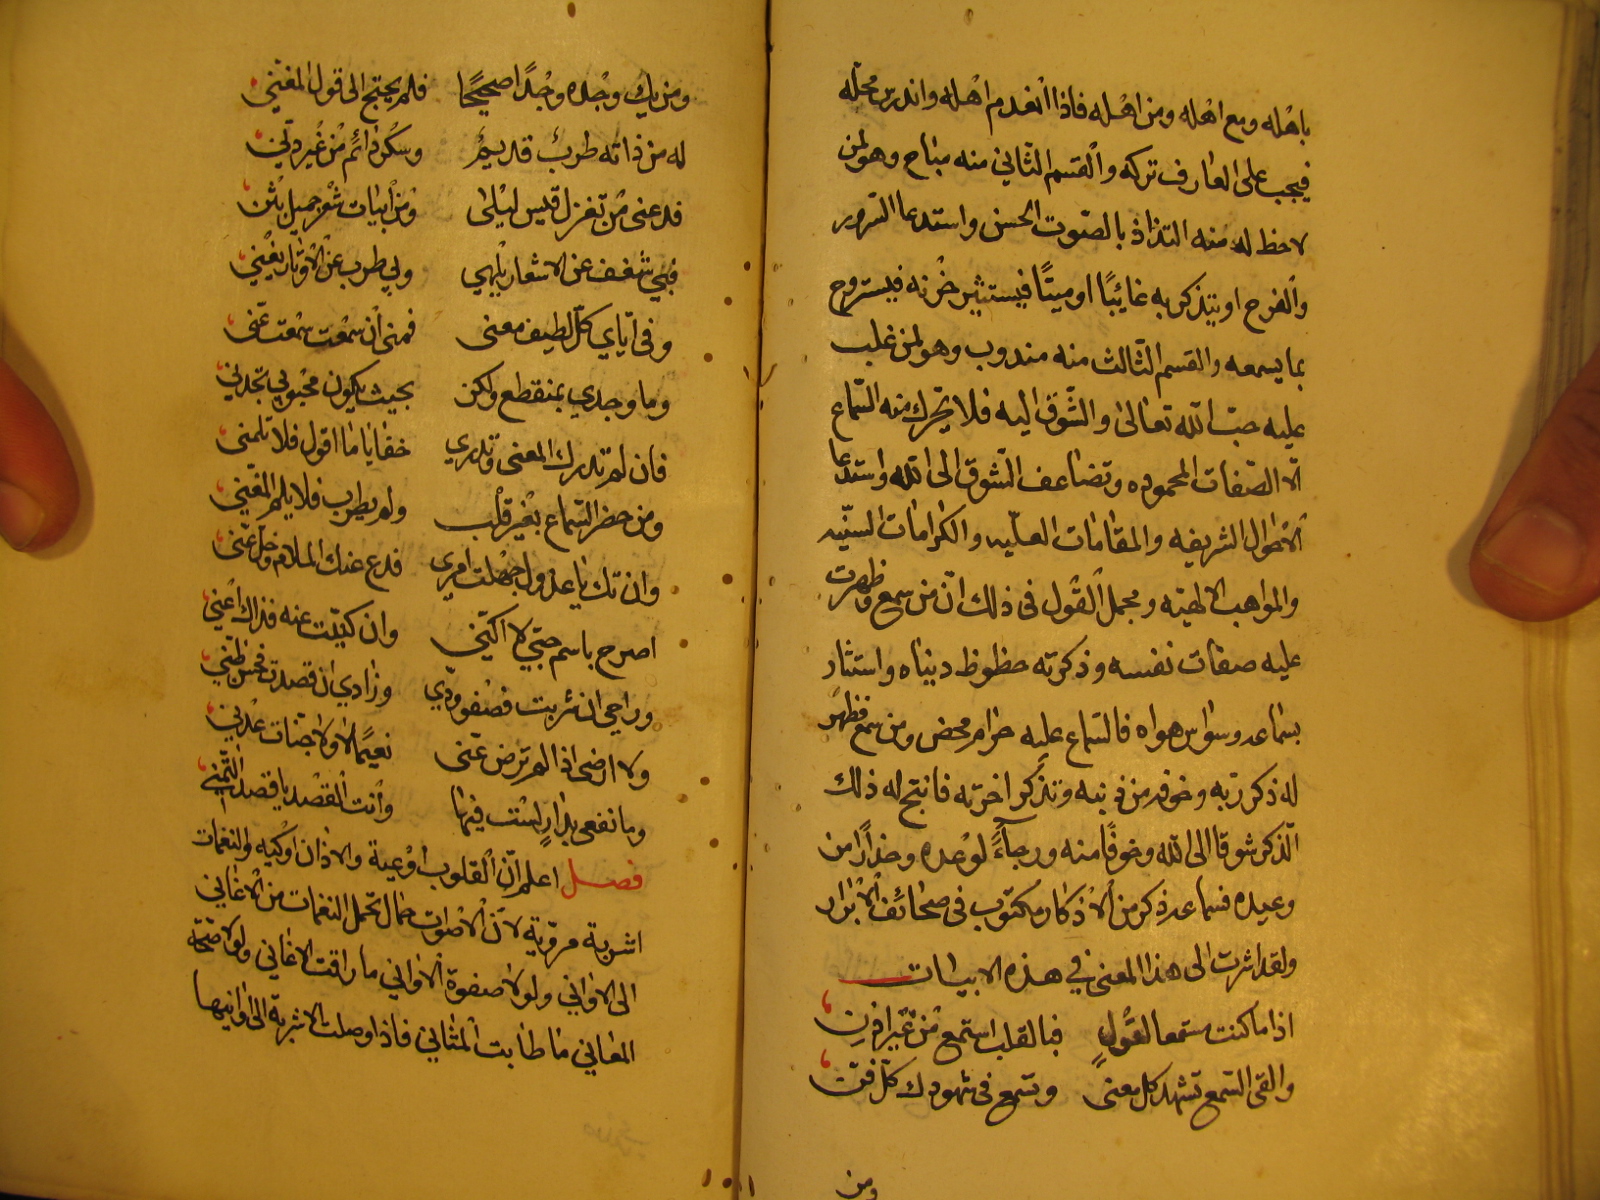 باهله ومع اهله ومن اهله فاذا انعدم اهله واندرس محله
فيجب على العارف تركه والقسم الثاني منه مباح وهو لمن
لا حظ له منه التذاذ بالصوت الحسن واستدعا السرور
والفرح او يتذكر به غائبًا او ميتًا فيستثير حزنه فيستروح
بما يسمعه والقسم الثالث منه مندوب وهو لمن غلب
عليه حب الله تعالى والشوق اليه فلا يحرك منه السماع
الا الصفات المحموده وتضاعف الشوق الى الله واستدعا
الاحوال الشريفه والمقامات العليه والكرامات السنيه
والمواهب الالهيه ومجمل القول في ذلك ان من سمع وظهرت
عليه صفات نفسه وذكرته حظوظ دنياه واستثار
بسماعه وسواس هواه فالسماع عليه حرام محض ومن سمع فظهر
له ذكر ربه وخوفه من ذنبه وتذكر اخرته فانتج له ذلك
الذكر شوقا الى الله وخوفًا منه ورجاءً لوعده وحذارًا من
وعيده فسماعه ذكر من الاذكار مكتوب في صحائف الابرار
ولقد اشرت الى هذا المعنى في هذه الابيات
اذا ما كنت مستمعا لقولٍ فبالقلب استمع من غير اذن
والقى السمع تشهد كل معنىً وتسمع في شهودك كل فن
ومن
ومن يك وجده وجدًا صحيحًا فلم يحتج الى قول المغني
له من ذاته طربٌ قديمٌ وسكر دائم من غير دن
فدعنى من تغزل قيس ليلى ومن ابيات شعر جميل بثن
فبي شغف عن الاشعار يلهي وبي طرب عن الاوتار يغني
وفى اياي كل لطيف معنى فمنى ان سمعت سمعت عنى
وما وجدي بمنقطع ولكن بحيث يكون محبوبي تجدني
فان لم تدرك المعنى وتدري خفايا ما اقول فلا تلمنى
ومن حضر السماع بغير قلب ولم يطرب فلا يلم المغني
وان تك يا عذول جهلت امري فدع عنك الملام وخل عنى
اصرح باسم حبي لا اكني وان كنيت عنه فذاك اعني
وراحي ان شربت فصفو ودي وزادي ان قصدت فحسن ظني
ولا ارضى اذا لم ترض عنى نعيمًا لا ولا جنات عدن
وما نفعي بدارٍ لست فيها وانت القصد يا قصد التمني
فصل اعلم ان القلوب اوعية والاذان اوكيه والنغمات
اشربة مروية لان الاصوات حمال تحمل النغمات من الاغاني
الى الاواني ولولا صفوة الاواني ما راقت الاغاني ولولا صحة
المعاني ما طابت المثاني فاذا وصلت الاشربة الى اوانيها